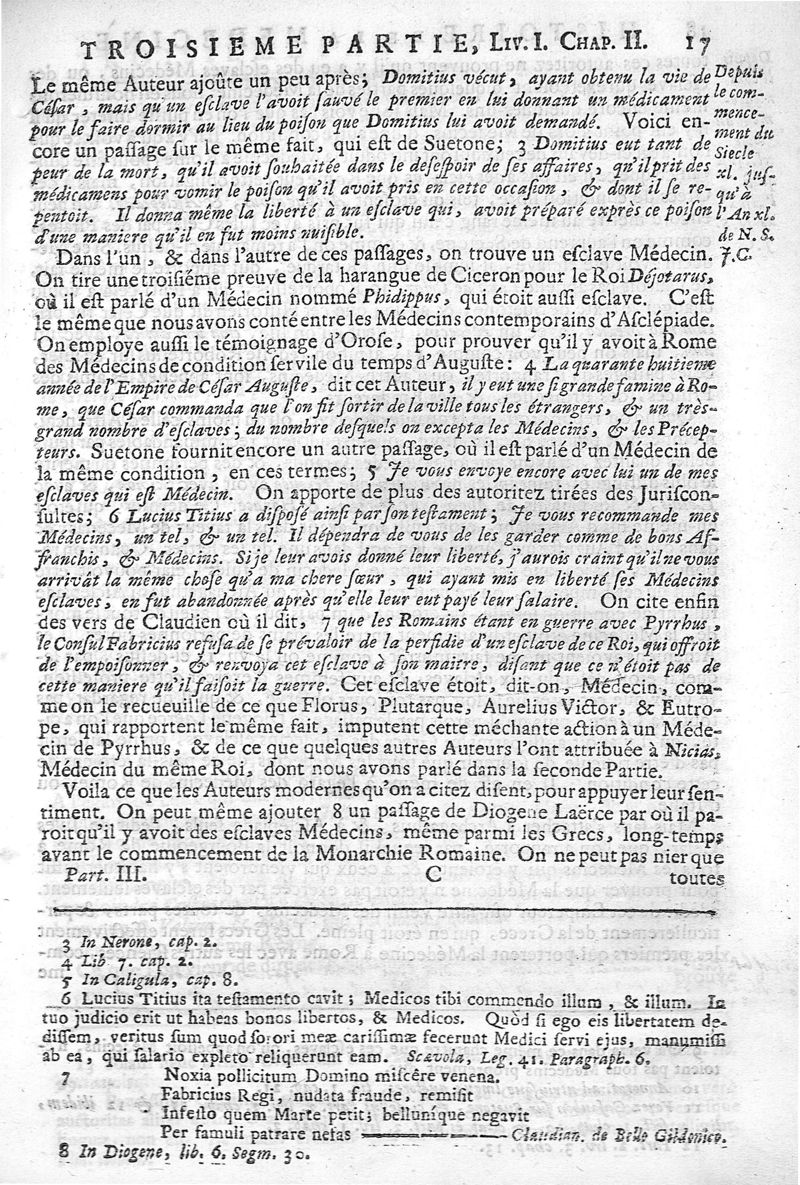 TROISIEME PARTIE, LIV. I. CHAP. II. 17
Le même Auteur ajoûte un peu après; Domitius vécut, ayant obtenu la vie de
Céſar, mais qu'un eſclave l'avoit ſauvé le premier en lui donnant un médicament
pour le faire dormir au lieu du poiſon que Domitius lui avoit demandé. Voici en-
core un paſſage ſur le même fait, qui eſt de Suetone; 3 Domitius eut tant de
peur de la mort, qu'il avoit ſouhaitée dans le deſeſpoir de ſes affaires, qu'il prit des
médicamens pour vomir le poiſon qu'il avoit pris en cette occaſion, & dont il ſe re-
pentoit. Il donna même la liberté à un eſclave qui, avoit préparé exprès ce poiſon
d'une maniere qu'il en fut moins nuiſible.
Depuis
le com-
mence-
ment du
Siecle
xl. juſ-
qu'à
l'An xl.
de N. S.
J.C.
Dans l'un, & dans l'autre de ces paſſages, on trouve un eſclave Médecin.
On tire une troiſiéme preuve de la harangue de Ciceron pour le Roi Déjotarus,
où il eſt parlé d'un Médecin nommé Phidippus, qui étoit auſſi eſclave. C'eſt
le même que nous avons conté entre les Médecins contemporains d'Aſclépiade.
On employe auſſi le témoignage d'Oroſe, pour prouver qu'il y avoit à Rome
des Médecins de condition ſervile du temps d'Auguſte: 4 La quarante huitieme
année de l'Empire de Céſar Auguſte, dit cet Auteur, il y eut une ſi grande famine à Ro-
me, que Céſar commanda que l'on fit ſortir de la ville tous les étrangers, & un très-
grand nombre d'eſclaves; du nombre deſquels on excepta les Médecins, & les Précep-
teurs. Suetone fournit encore un autre paſſage, où il eſt parlé d'un Médecin de
la même condition, en ces termes; 5 Je vous envoye encore avec lui un de mes
eſclaves qui eſt Médecin. On apporte de plus des autoritez tirées des Juriſcon-
ſultes; 6 Lucius Titius a diſpoſé ainſi par ſon teſtament; Je vous recommande mes
Médecins, un tel, & un tel. Il dépendra de vous de les garder comme de bons Af-
franchis, & Médecins. Si je leur avois donné leur liberté, j'aurois craint qu'il ne vous
arrivât la même choſe qu'a ma chere ſœur, qui ayant mis en liberté ſes Médecins
eſclaves, en fut abandonnée après qu'elle leur eut payé leur ſalaire. On cite enfin
des vers de Claudien où il dit, 7 que les Romains étant en guerre avec Pyrrhus,
le Conſul Fabricius refuſa de ſe prévaloir de la perfidie d'un eſclave de ce Roi, qui offroit
de l'empoiſonner, & renvoya cet eſclave à ſon maitre, diſant que ce n'étoit pas de
cette maniere qu'il faiſoit la guerre. Cet eſclave étoit, dit-on, Médecin, com-
me on le recueuille de ce que Florus, Plutarque, Aurelius Victor, & Eutro-
pe, qui rapportent le même fait, imputent cette méchante action à un Méde-
cin de Pyrrhus, & de ce que quelques autres Auteurs l'ont attribuée à Nicias,
Médecin du même Roi, dont nous avons parlé dans la ſeconde Partie.
Voila ce que les Auteurs modernes qu'on a citez diſent, pour appuyer leur ſen-
timent. On peut même ajouter 8 un paſſage de Diogene Laërce par où il pa-
roit qu'il y avoit des eſclaves Médecins, même parmi les Grecs, long-temps
avant le commencement de la Monarchie Romaine. On ne peut pas nier que
Part. III. C toutes
3 In Nerone, cap. 2.
4 Lib 7. cap. 2.
5 In Caligula, cap. 8.
6 Lucius Titius ita teſtamento cavit; Medicos tibi commendo illum, & illum. In
tuo judicio erit ut habeas bonos libertos, & Medicos. Quòd ſi ego eis libertatem de-
diſſem, veritus ſum quod ſorori meæ cariſſimæ fecerunt Medici ſervi ejus, manumiſſi
ab ea, qui ſalario expleto reliquerunt eam. Scævola, Leg. 41. Paragraph. 6.
7 Noxia pollicitum Domino miſcêre venena.
Fabricius Regi, nudata fraude, remiſit
Infeſto quem Marte petit; bellumque negavit
Per famuli patrare nefas — Claudian. de Bello Gildonico.
8 In Diogene, lib. 6. Segm. 30.